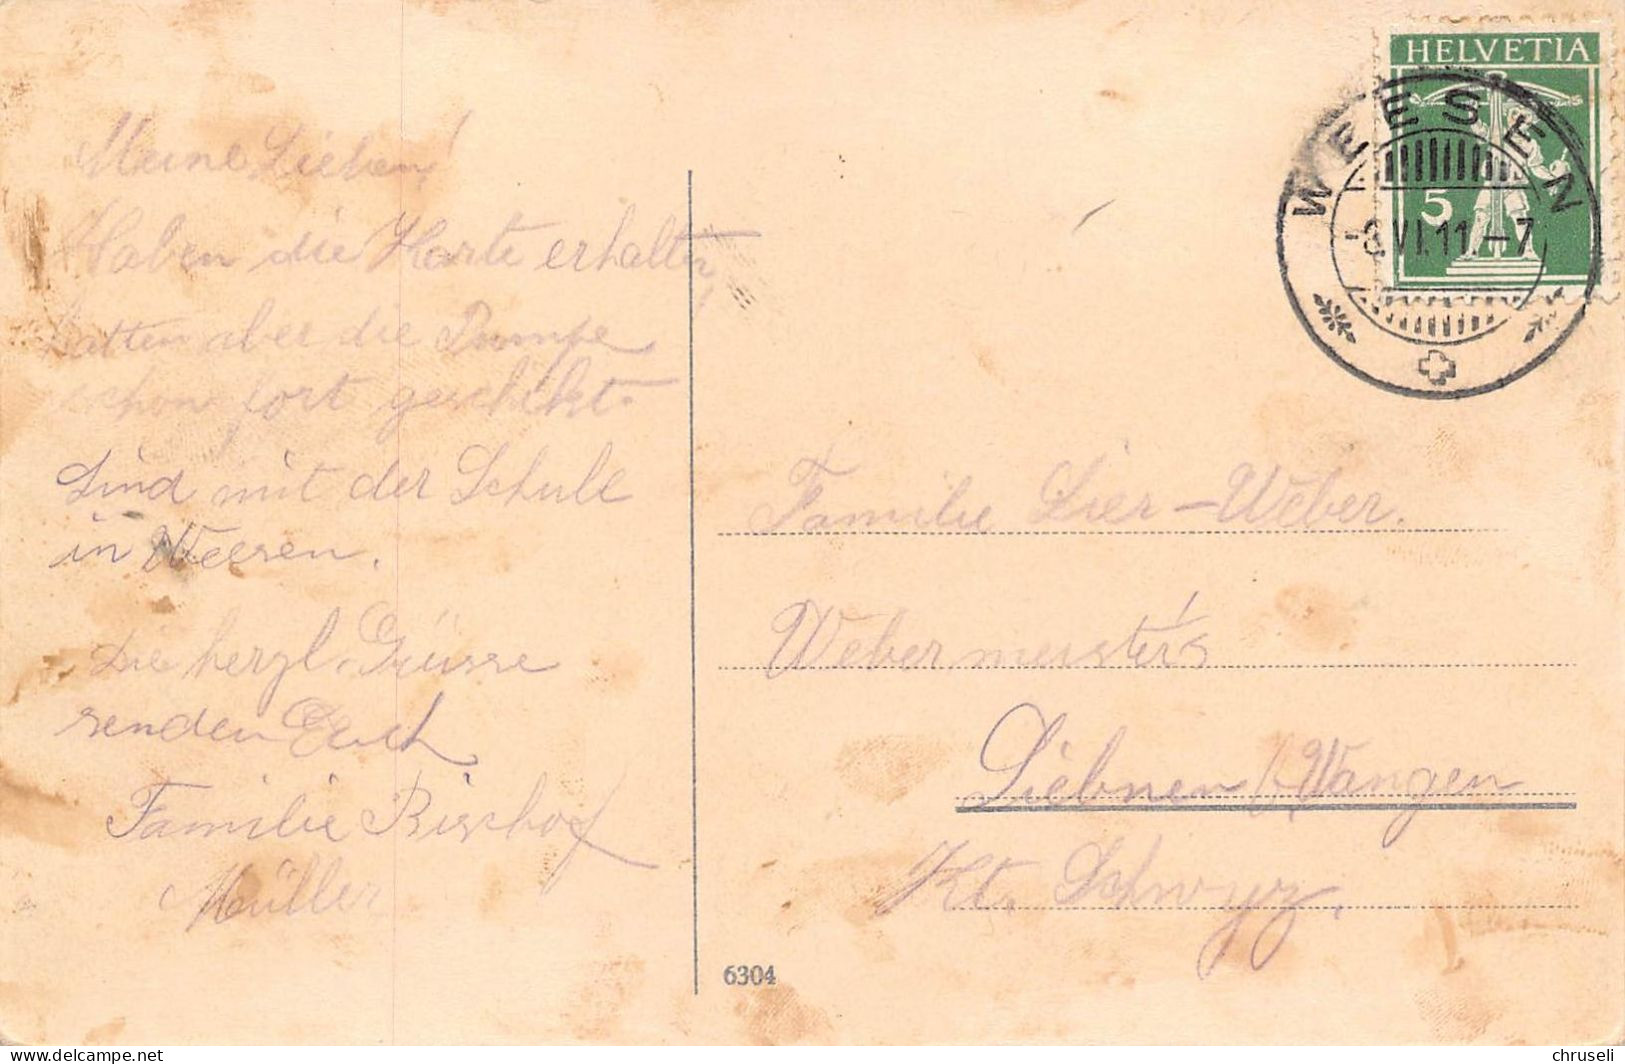 Meine Lieben!
Haben die Karte erhalten
hatten aber die Pumpe
schon fort geschikt.
Sind mit der Schule
in Weesen.
Die herzl. Grüsse
senden Euch
Familie Bischof
Müller
6304
HELVETIA
5
WEESEN
-8.VI.11.-7
Familie Lier-Weber.
Webermeister's
Siebnen / Wangen
Kt. Schwyz.
delcampe.net
chruseli